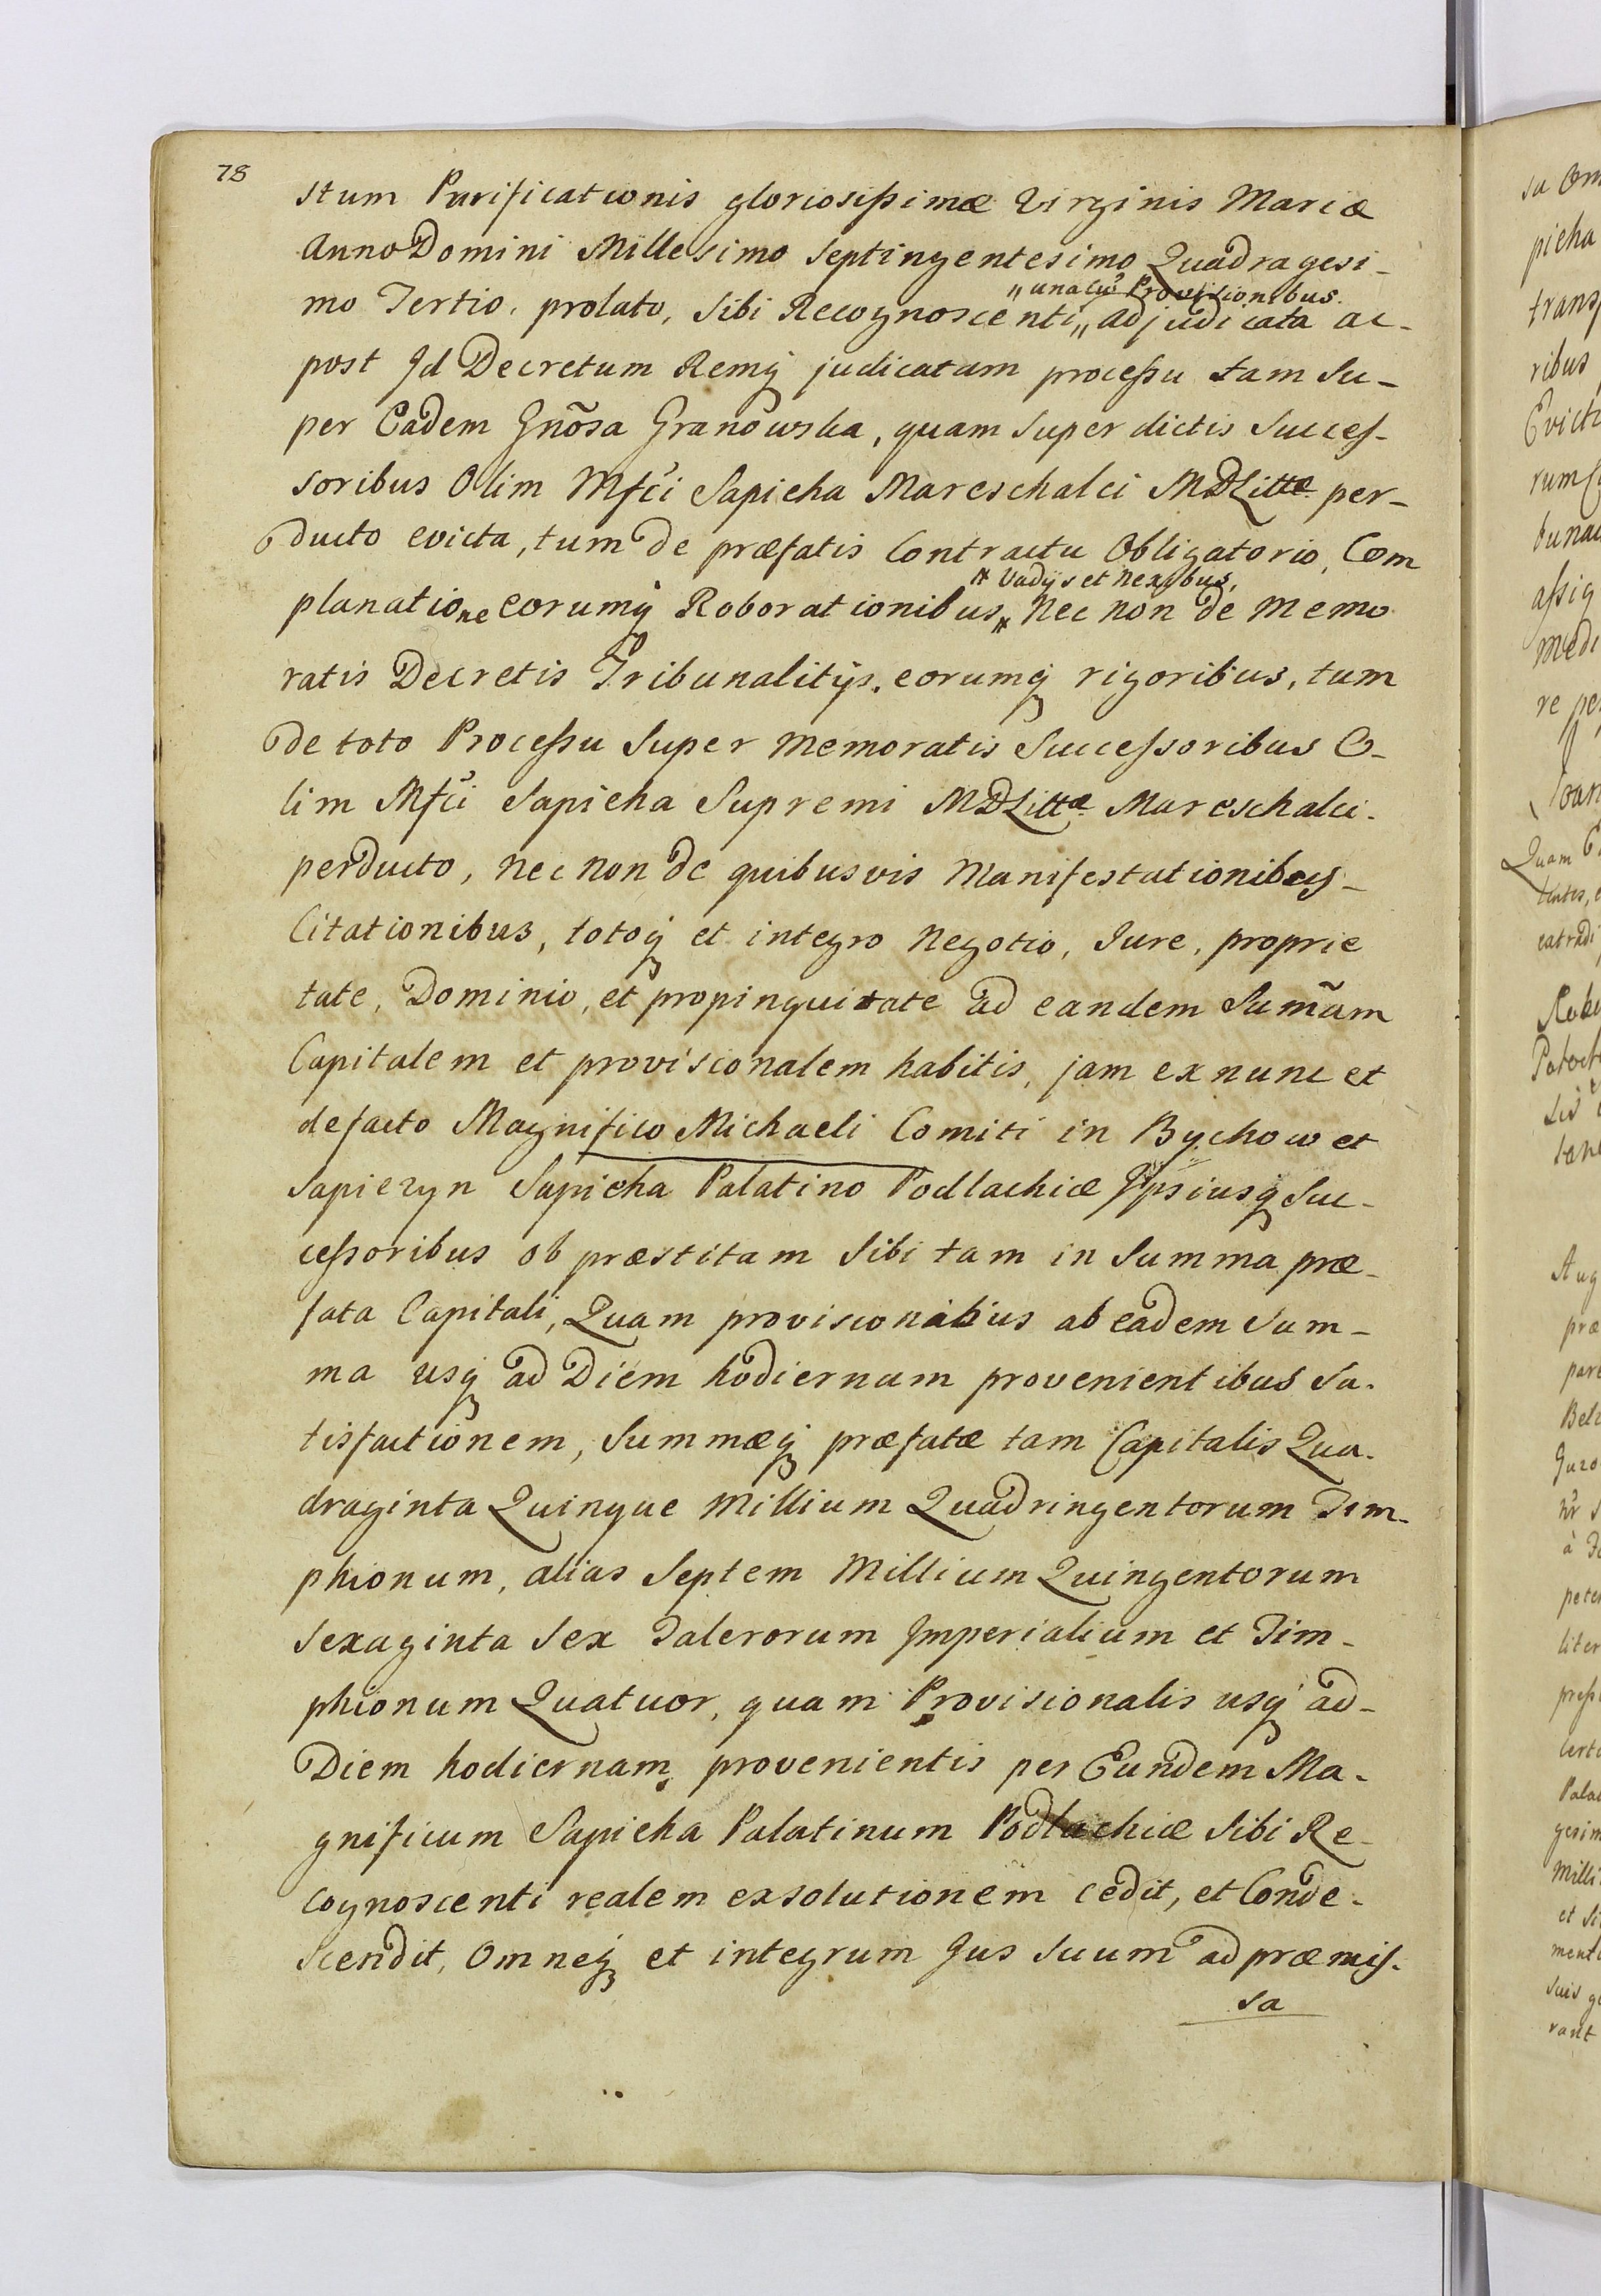 78
stum Purificationis gloriosissimæ Virginis Mariæ
Anno Domini Millesimo Septingentesimo Quadragesi-
„ unacũ Provisionibus.
mo Tertio, prolato, Sibi Recognoscenti„ adjudicata ac-
post Id Decretum Remq̃ judicatam processu tam Su-
per Eadem Gnõsa Granowska, quam super dictis Succes-
soribus Olim Mfci Sapieha Mareschalci MDLittæ per-
ducto evicta, tum de præfatis Contractu Obligatorio, Com
* Vadijs et Nexibus,
planatione eorumq̃ Roborationibus * Nec non de Memo
ratis Decretis Tribunalitijs, eorumq̃ rigoribus, tum
de toto Processu Super Memoratis Successoribus O-
lim Mfci Sapieha Supremi MDLittæ Mareschalci
perducto, Nec non de quibusvis Manifestationibus-
Citationibus, totoq̃ et integro Negotio, Jure, proprie
tate, Dominio, et propinquitate ad eandem Sum̃am
Capitalem et provisionalem habitis, jam ex nunc et
defacto Magnifico Michaeli Comiti in Bychow et
Sapiezyn Sapieha Palatino Podlachiæ Ipsiusq̃ Suc-
cessoribus ob præstitam Sibi tam in Summa præ-
fata Capitali, Quam provisionibus ab eadem Sum-
ma usq̃ ad Diem hodiernam provenientibus Sa-
tisfactionem, Summæq̃ præfatæ tam Capitalis Qua-
draginta Quinque Millium Quadringentorum Tim-
phionum, alias Septem Millium Quingentorum
Sexaginta Sex Talerorum Imperialium et Tim-
phionum Quatuor, quam Provisionalis usq̃ ad-
Diem hodiernam provenientis per Eundem Ma-
gnificum Sapieha Palatinum Podlachiæ Sibi Re-
cognoscenti realem exsolutionem cedit, et Conde-
scendit, Omneq̃ et integrum Jus Suum ad præmis-
sa